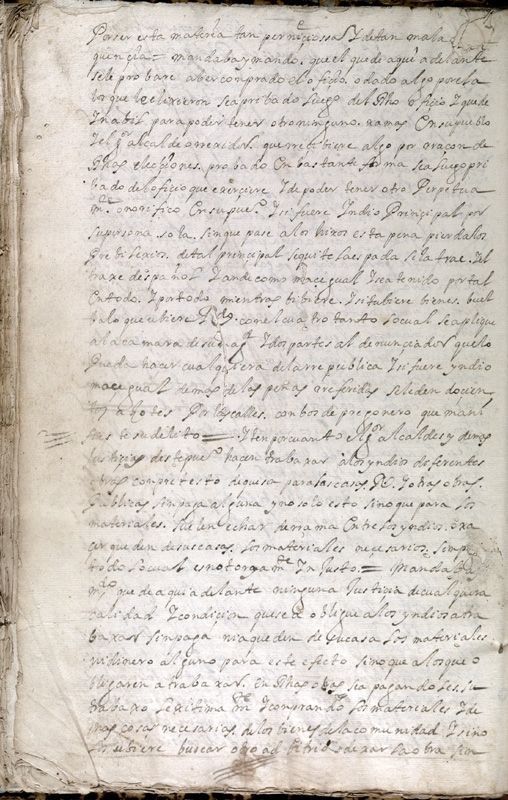 Por ser esta materia tan perniçiossa Y de tan mala
quençia = mandaba y mando. que el que de aqui adelante
sele probare aber comprado el ofiçio. o dado algo por el a
los que le elixieron sea pribado luego del dho ofiçio Y quede
Ynabil para poder tener otro ninguno. xamas En su pueblo
Y el gr. alcalde o rrexidor. que rreçibiere algo por rraçon de
dhas elecçiones. probado En bastante forma sea luego pri
bado del ofiçio que exerçiere Y de poder tener otro Perpetua
mte onorifico En su pueo. Y si fuere Yndio Prinçipal por
su persona sola. sin que pase a los hixos esta pena pierda los
Prebilexios. de tal prinçipal se quite la espada si la trae. Y el
traxe de español Y ande como maçegual Y sea tenido por tal
En todo. Y por todo mientras bibiere. Y si tubiere bienes. buel
ba lo que ubiere Rdo. con el cuatro tanto Lo cual se aplique
a la camara de su magt. Y dos partes al denunçiador que lo
Pueda haçer cualquiera de la rrepublica Y si fuere yndio
maçegual demas de las penas rreferidas se le den doçien
tos açotes Por las calles. con bos de pregonero que mani
fieste su delito = Y ten por cuanto los alcaldes y demas
Justiçias deste pueo. haçen trabaxar a los yndios diferentes
obras con pretesto de que sa para las casas. Rs. Y otras obras.
Publicas sin paga alguna y no solo esto sino que para los
materiales. suelen echar derrama Entre los yndios. o ha
çer que den de sus casas. los materiales neçesarios. simpre
todo lo cual es notoriamte Ynjusto. = Manda
mdo. que de aqui adelante ninguna Justiçia de cualquiera
calidad Y condiçion que sea obligue a los yndios a tra
baxar sin paga ni a que den de su casa los materiales
ni dinero alguno para este efecto sino que a los que o
bligaren a trabaxar. En dhas obras sea pagandoles. su
trabaxo lexitimamte Y comprando los materiales Y de
mas cosas neçesarias. de los bienes de la comunidad Y si no
los ubiere buscar otro adbitrio o dexar la obra sin